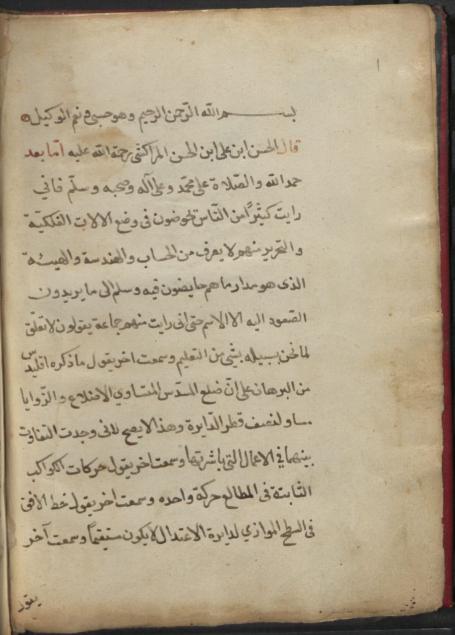 ١
بسم الله الرحمن الرحيم وهو حسبي ونعم الوكيل
قال الحسن ابن على ابن الحسن المراكشي رحمة الله عليه اما بعد
حمد الله والصلاة على محمد وعلى آله وصحبه وسلم فاني
رايت كثيرًا من الناس يخوضون فى وضع الالات الفلكية
والتحرير منهم لا يعرف من الحساب والهندسة والهيئة
الذى هو مدار ما هم خايضون فيه وسلم الى ما يريدون
الصعود اليه الا الاسم حتى انى رايت منهم جماعة يقولون لا تعلق
لما نحن بسبيله بشئ من التعليم وسمعت اخر يقول ما ذكره اقليدس
من البرهان على انّ ضلع المسدّس المتساوي الاضلاع والزوايا
مساو لنصف قطر الدايرة وهذا لا يصح لانى وجدت التفاوت
بينهما في الاعمال التي باشرتها وسمعت اخر يقول حركات الكواكب
الثابتة فى المطالع حركة واحده وسمعت اخر يقول خط الافق
فى السطح الموازي لدايرة الاعتدال لا يكون مستقيمًا وسمعت آخر
يقول